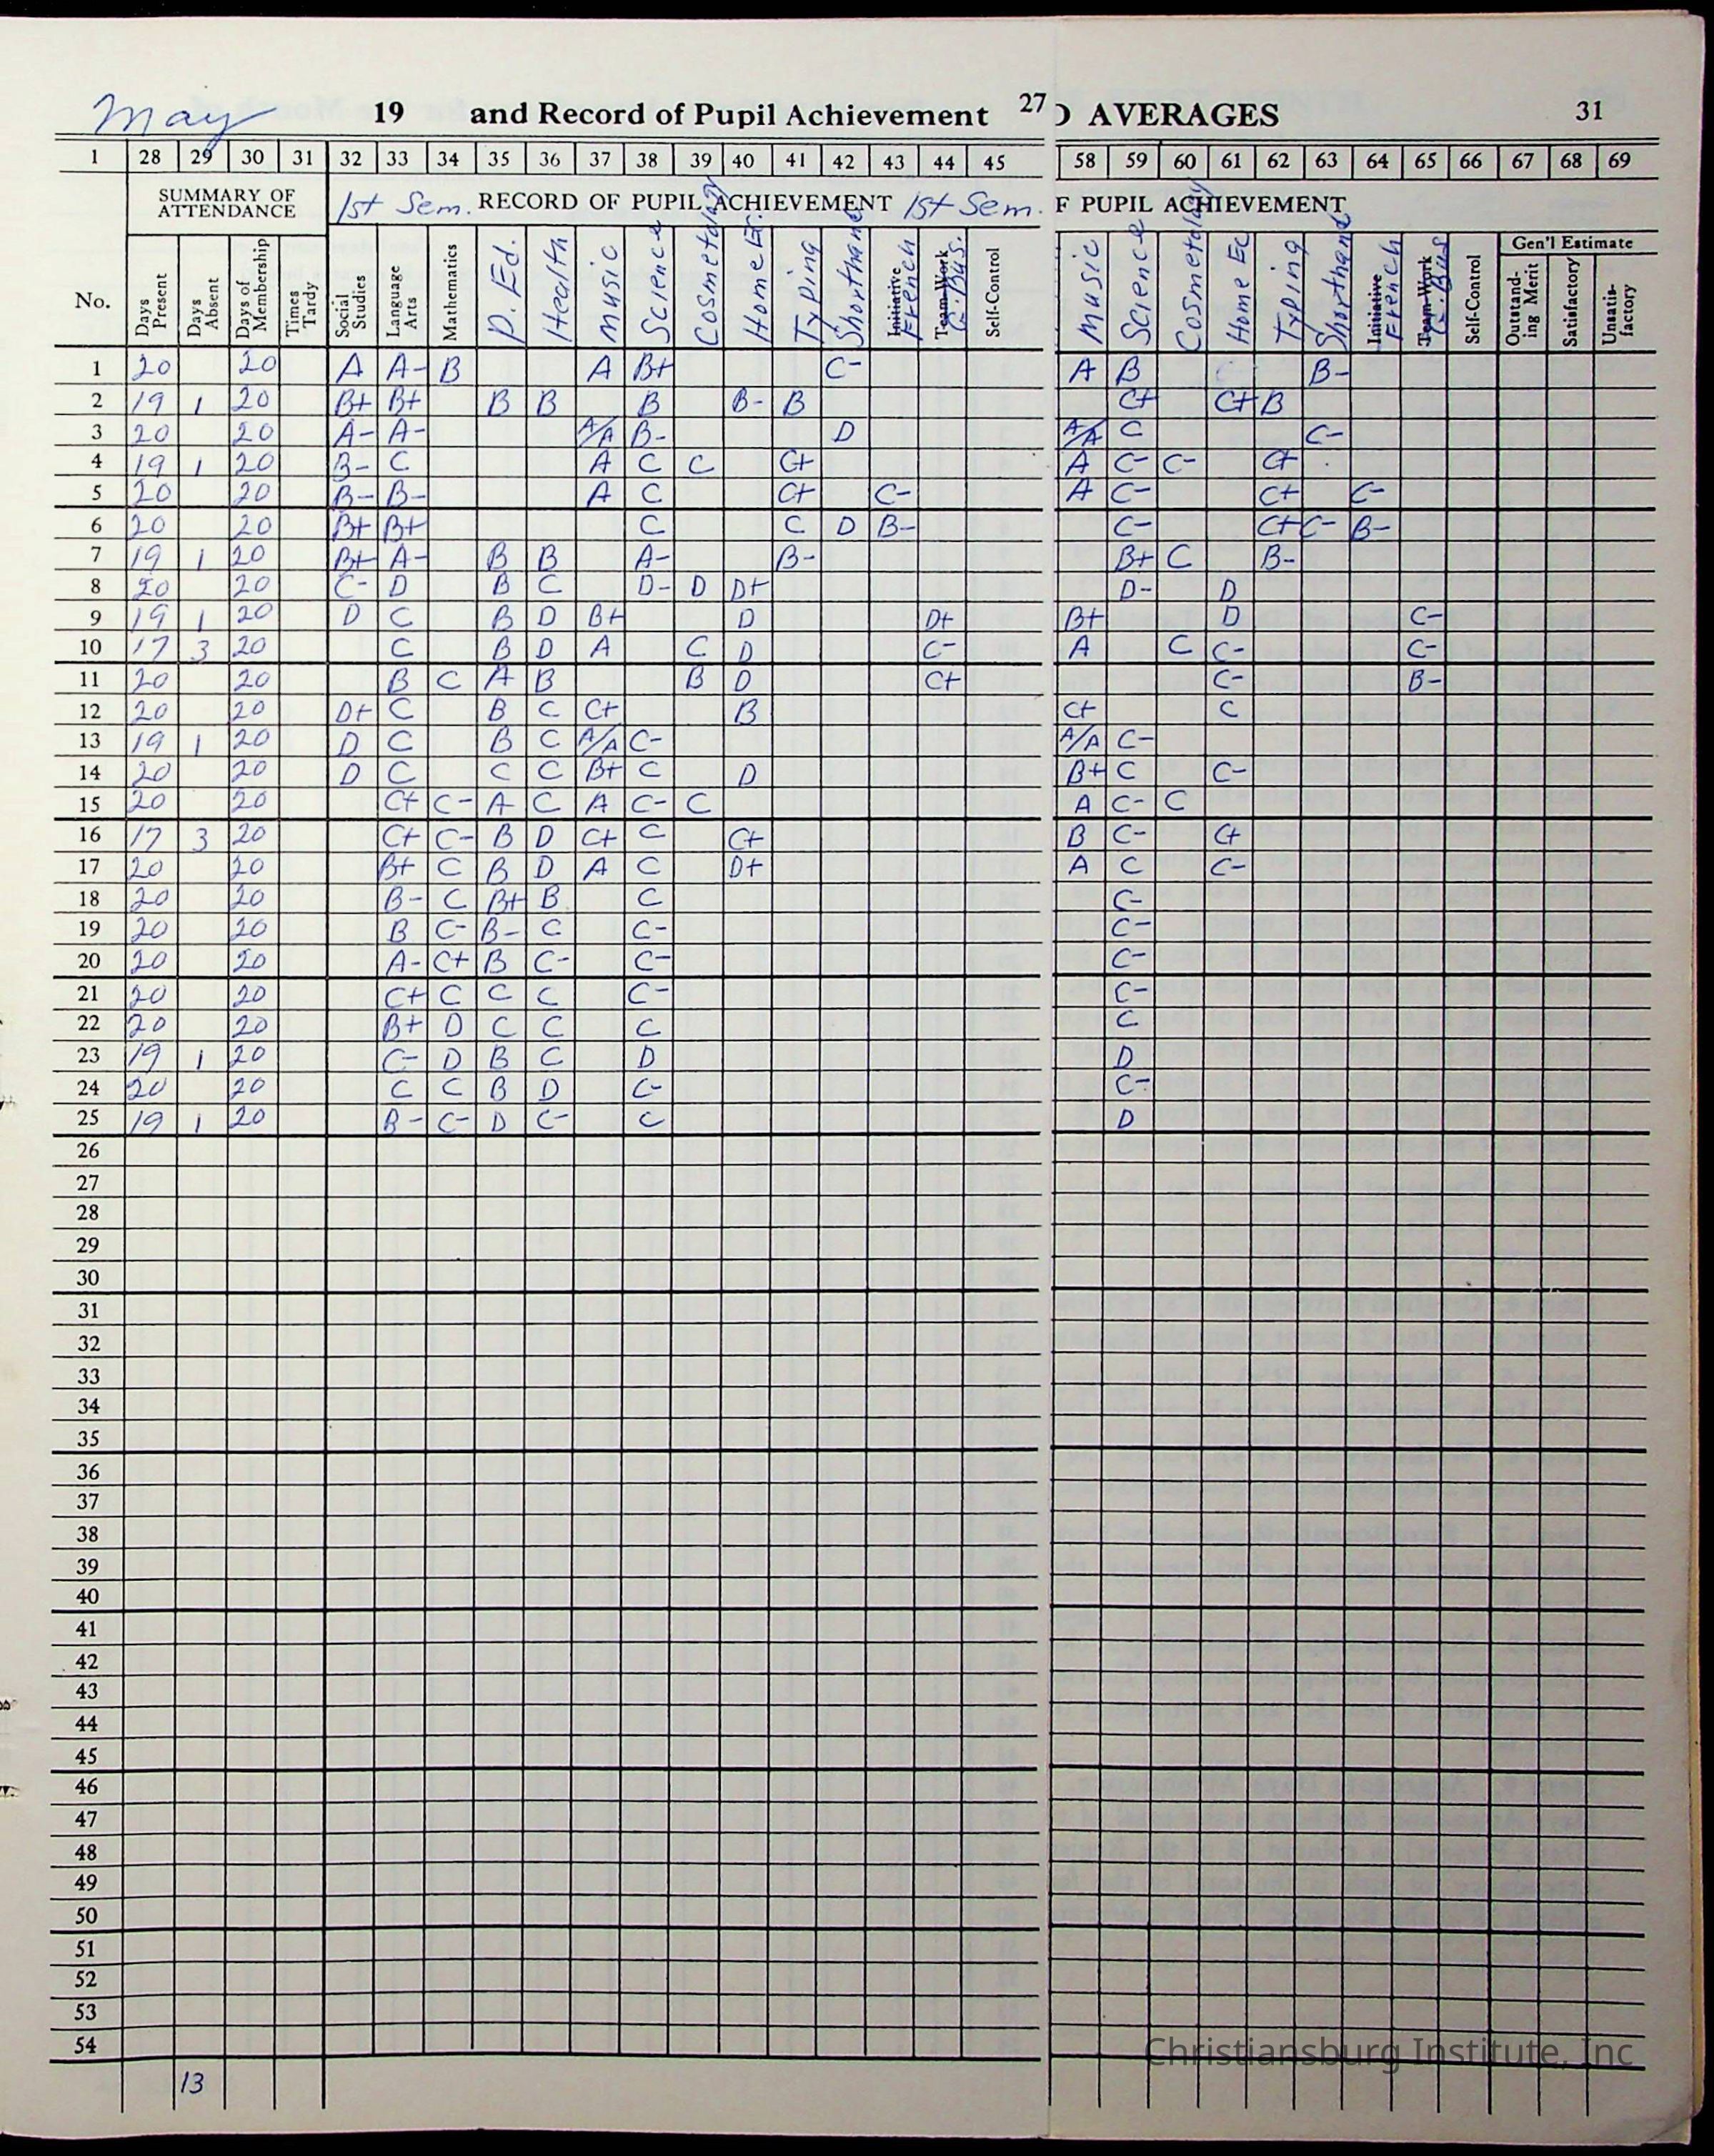 May 19 and Record of Pupil Achievement 27 D AVERAGES 31
1 28 29 30 31 32 33 34 35 36 37 38 39 40 41 42 43 44 45 58 59 60 61 62 63 64 65 66 67 68 69
SUMMARY OF ATTENDANCE 1st Sem. RECORD OF PUPIL ACHIEVEMENT 1st Sem. F PUPIL ACHIEVEMENT
Gen'l Estimate
No. Days Present Days Absent Days of Membership Times Tardy Social Studies Language Arts Mathematics P. Ed. Health Music Science Cosmetology Home Ec. Typing Shorthand Initiative French Team-Work G. Bus. Self-Control Music Science Cosmetology Home Ec Typing Shorthand Initiative French Team-Work G. Bus Self-Control Outstanding Merit Satisfactory Unsatisfactory
1 20 20 A A- B A B+ C- A B B-
2 19 1 20 B+ B+ B B B B- B C+ C+ B
3 20 20 A- A- A/A B- D A/A C C-
4 19 1 20 B- C A C C C+ A C- C- C+
5 20 20 B- B- A C C+ C- A C- C+ C-
6 20 20 B+ B+ C C D B- C- C+ C- B-
7 19 1 20 B+ A- B B A- B- B+ C B-
8 20 20 C- D B C D- D D+ D- D
9 19 1 20 D C B D B+ D D+ B+ D C-
10 17 3 20 C B D A C D C- A C C- C-
11 20 20 B C A B B D C+ C- B-
12 20 20 D+ C B C C+ B C+ C
13 19 1 20 D C B C A/A C- A/A C-
14 20 20 D C C C B+ C D B+ C C-
15 20 20 C+ C- A C A C- C A C- C
16 17 3 20 C+ C- B D C+ C C+ B C- C+
17 20 20 B+ C B D A C D+ A C C-
18 20 20 B- C B+ B C C-
19 20 20 B C- B- C C- C-
20 20 20 A- C+ B C- C- C-
21 20 20 C+ C C C C- C-
22 20 20 B+ D C C C C
23 19 1 20 C- D B C D D
24 20 20 C C B D C- C-
25 19 1 20 B- C- D C- C D
26
27
28
29
30
31
32
33
34
35
36
37
38
39
40
41
42
43
44
45
46
47
48
49
50
51
52
53
54
13
Christiansburg Institute, Inc